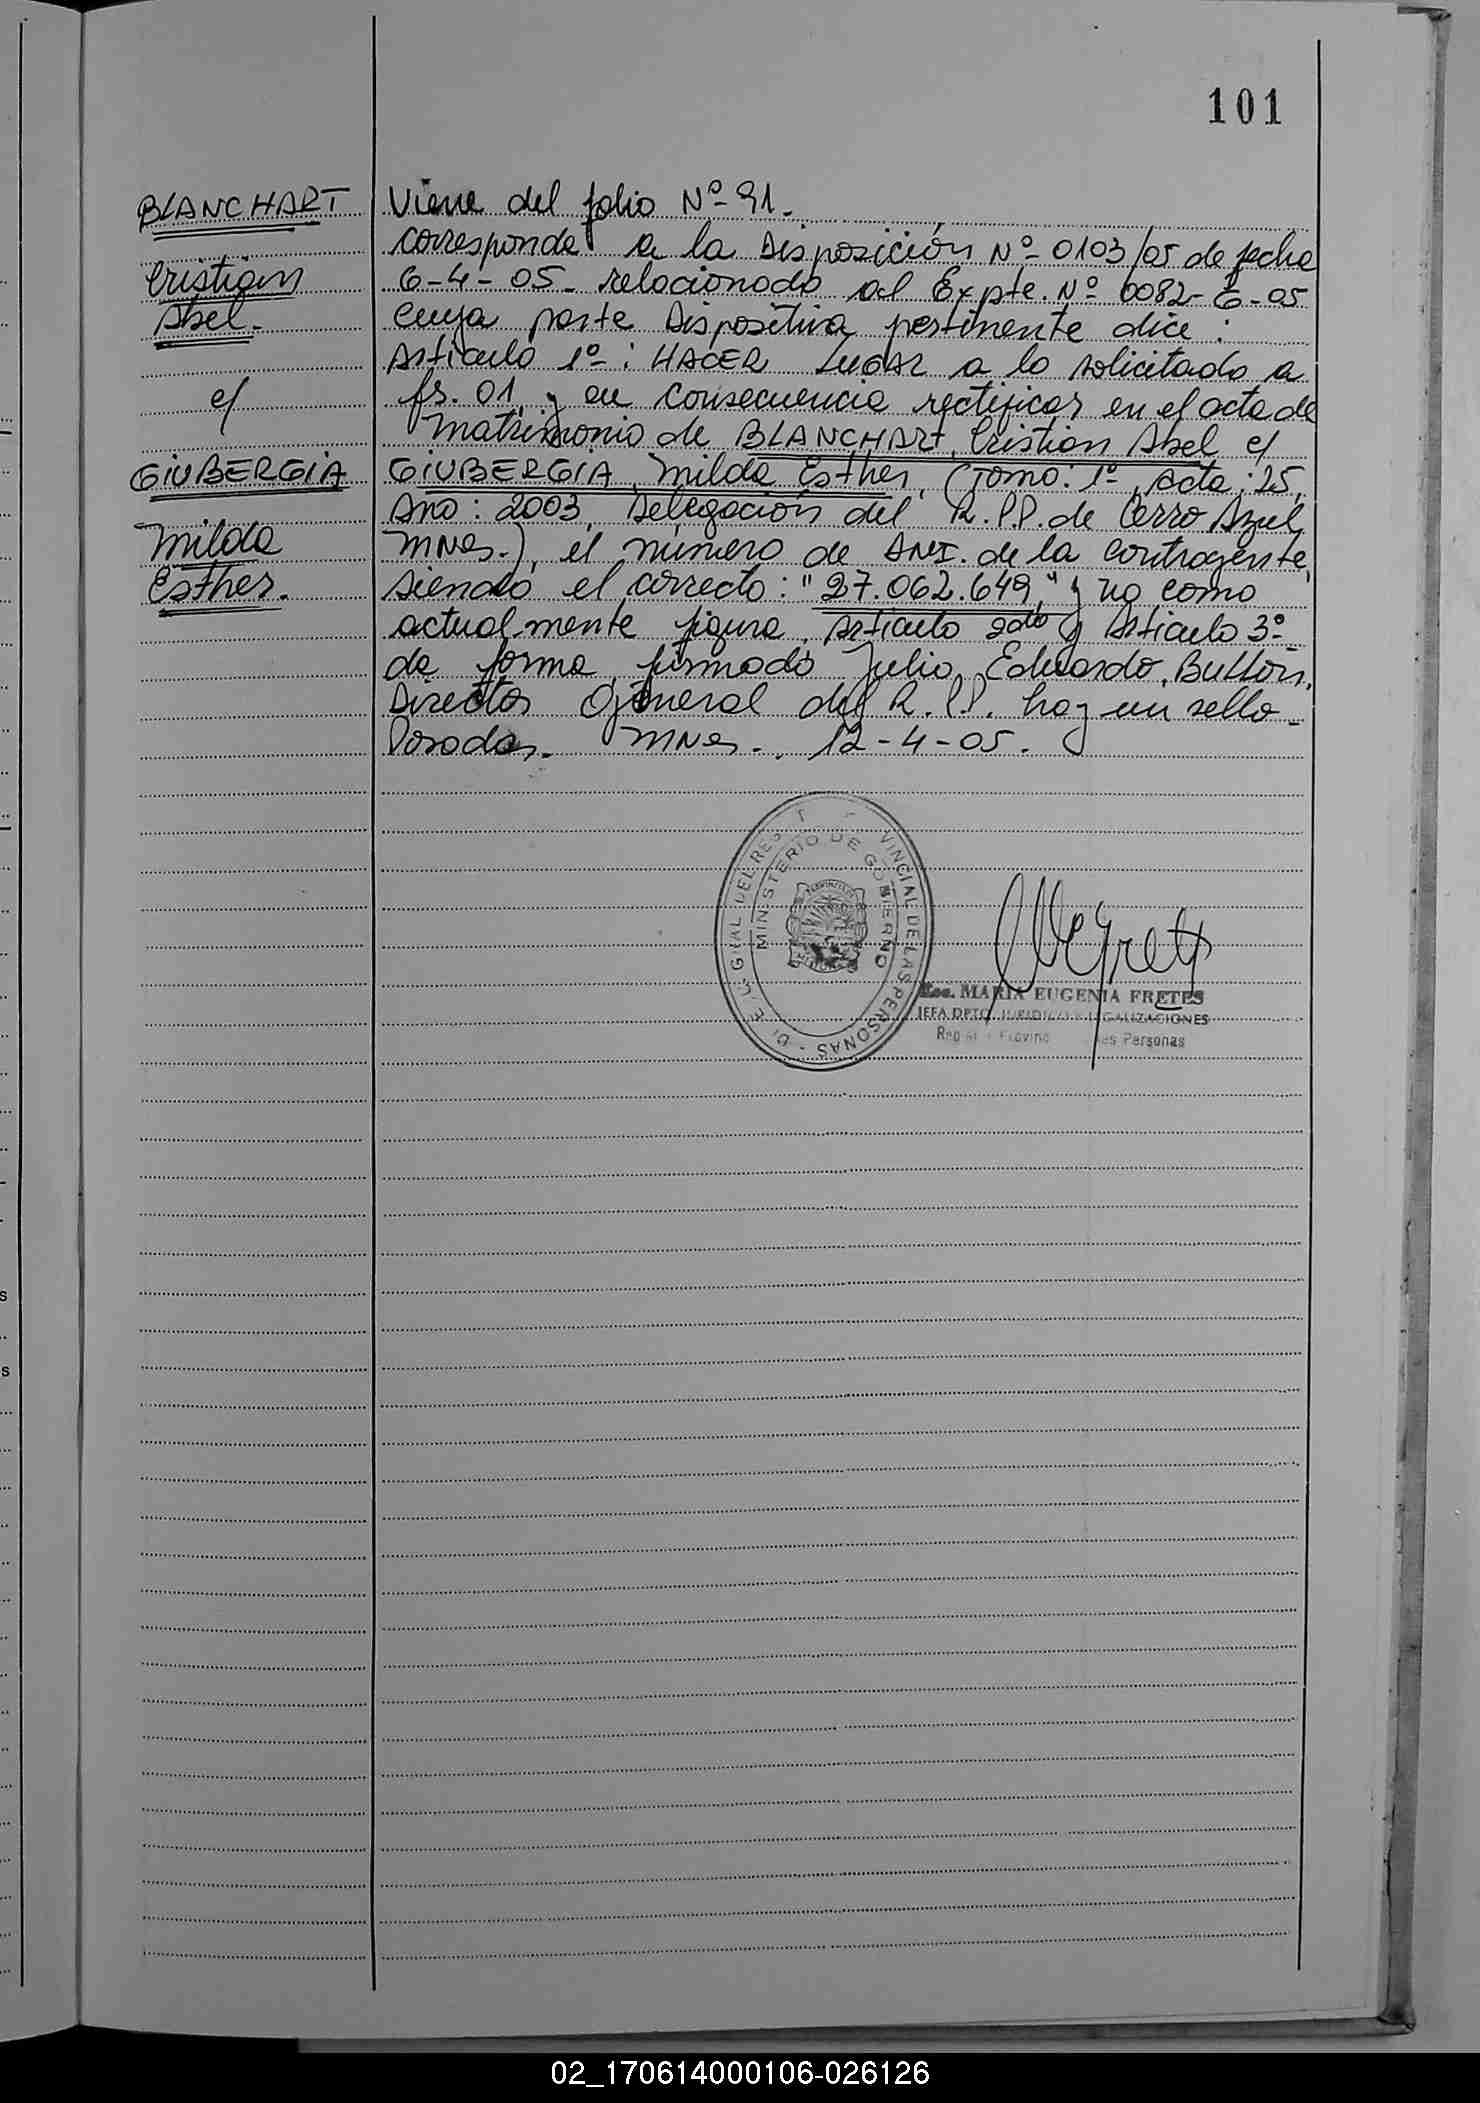 101
BLANCHART
Cristian
Abel.-
c/
GIUBERGIA
Milda
Esther.
Viene del folio Nº 91.-
corresponde a la Disposición Nº 0103/05 de fecha
6-4-05- relacionado al Expte. Nº 0082-G-05
cuya parte Dispositiva pertinente dice:
Artículo 1º: HACER LUGAR a lo solicitado a
fs. 01, y en consecuencia rectificar en el acta de
Matrimonio de BLANCHART, Cristian Abel c/
GIUBERGIA, Milda Esther, (Tomo: 1º, Acta: 25,
Año: 2003, Delegación del R.P.P. de Cerro Azul,
MNES.), el número de DNI. de la contrayente,
siendo el correcto: "27.062.649," y no como
actualmente figura. Artículo 2do y Artículo 3º
de forma, firmado Julio, Eduardo, Buttori,
Director General del R.P.P. hay un sello-
Posadas. MNES., 12-4-05.
VINCIAL DE LAS PERSONAS
GRAL DEL REG
MINISTERIO DE GOBIERNO
Esc. MARIA EUGENIA FRETES
JEFA DPTO. JURIDICO LEGALIZACIONES
Personas
02_170614000106-026126